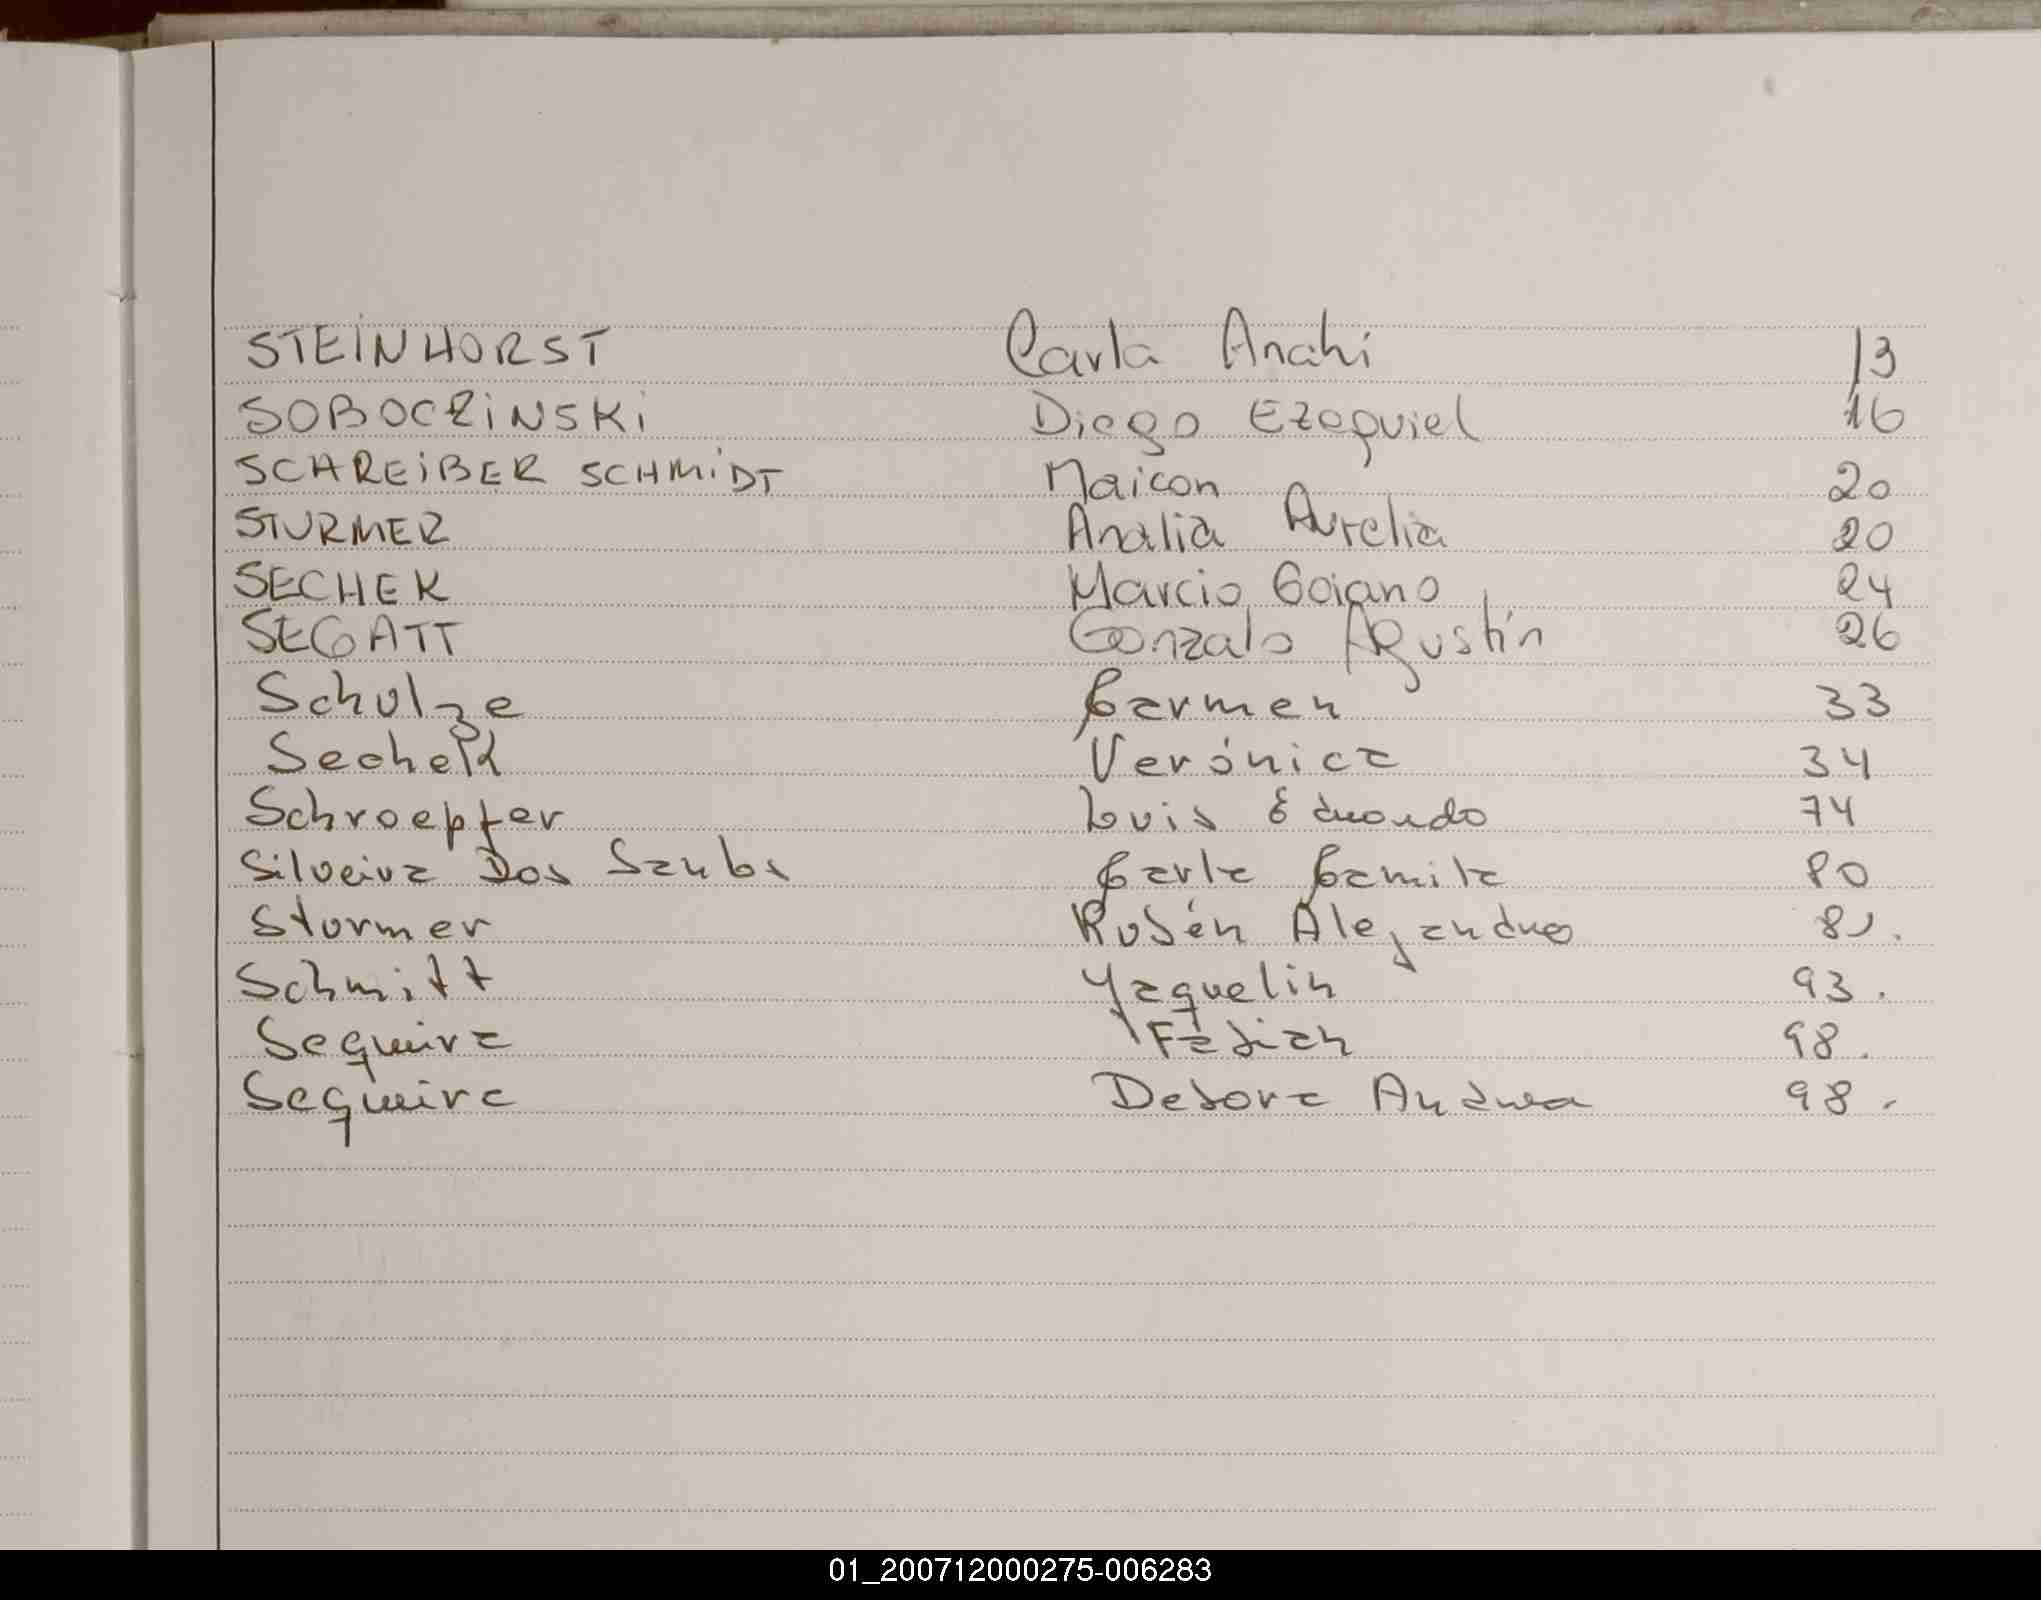 STEINHORST Carla Anahi 13
SOBOCZINSKI Diego Ezequiel 16
SCHAREIBER SCHMIDT Maicon 20
STURMER Analia Aurelia 20
SECHEK Marcio Goiano 24
SEGATT Gonzalo Agustín 26
Schulze Carmen 33
Sechek Verónica 34
Schroepfer Luis Eduardo 74
Silveira Dos Santos Carla Camila 80
Sturmer Rubén Alejandro 81.
Schmitt Yaquelin 93.
Sequeira Fabian 98.
Sequeira Debora Andrea 98.
01_200712000275-006283